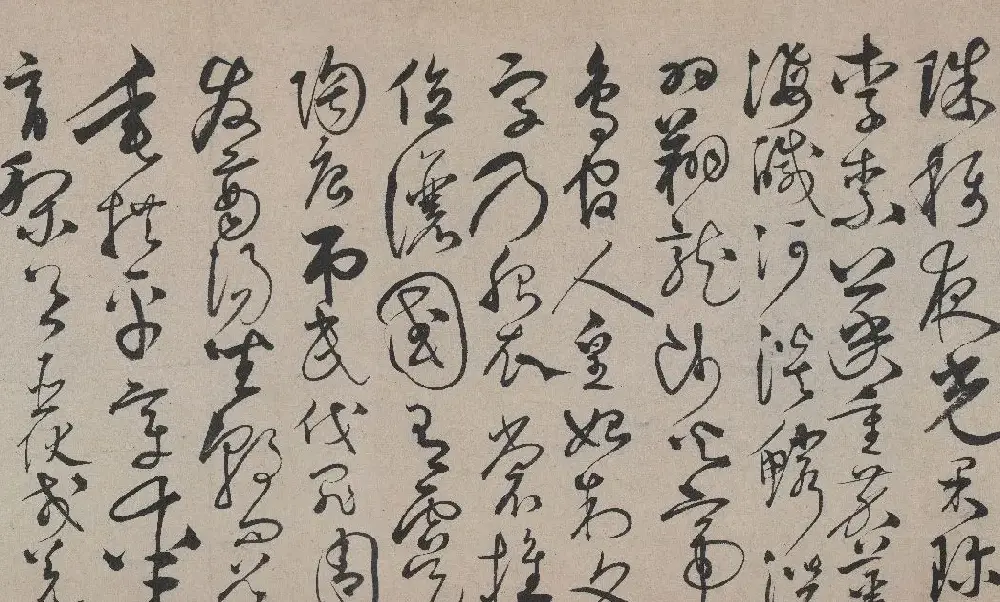 珠稱夜光果珍
李柰菜重芥薑
海鹹河淡鱗潛
羽翔龍師火帝
鳥官人皇始制文
字乃服衣裳推
位讓國有虞
陶唐弔民伐罪周
發商湯坐朝問道
垂拱平章愛
育黎首臣伏戎羌